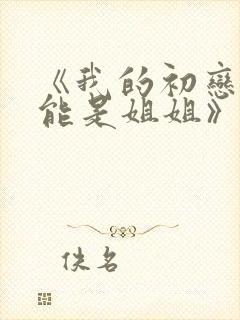 《我的初戀
能是姐姐》
佚名